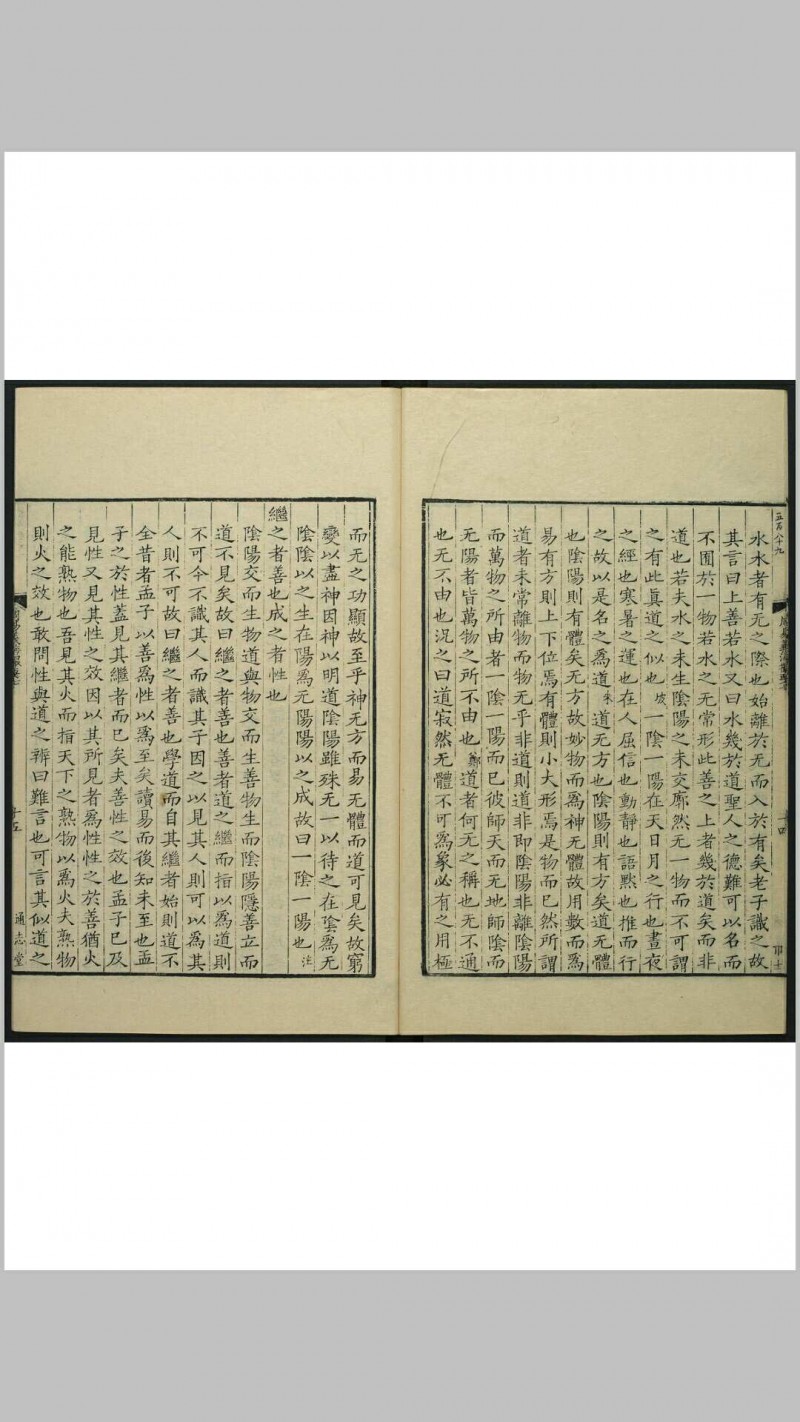 五百八十九
水水者有无之際也始離於无而入於有矣老子識之故
其言曰上善若水又曰水幾於道聖人之德難可以名而
不囿於一物若水之无常形此善之上者幾於道矣而非
道也若夫水之未生陰陽之未交廓然无一物而不可謂
之有此眞道之似也坡一陰一陽在天日月之行也晝夜
之經也寒暑之運也在人屈信也動靜也語默也推而行
之故以是名之爲道朱道无方也陰陽則有方矣道无體
也陰陽則有體矣无方故妙物而爲神无體故用數而爲
易有方則上下位焉有體則小大形焉是物而已然所謂
道者未常離物而物无乎非道則道非即陰陽非離陰陽
而萬物之所由者一陰一陽而已彼師天而无地師陰而
无陽者皆萬物之所不由也鄭道者何无之稱也无不通
也无不由也況之曰道寂然无體不可爲象必有之用極
而无之功顯故至乎神无方而易无體而道可見矣故窮
變以盡神因神以明道陰陽雖殊无一以待之在陰爲无
陰陰以之生在陽爲无陽陽以之成故曰一陰一陽也注
繼之者善也成之者性也
陰陽交而生物道與物交而生善物生而陰陽隱善立而
道不見矣故曰繼之者善也善者道之繼而指以爲道則
不可今不識其人而識其子因之以見其人則可以爲其
人則不可故曰繼之者善也學道而自其繼者始則道不
全昔者孟子以善爲性以爲至矣讀易而後知未至也孟
子之於性蓋見其繼者而已矣夫善性之效也孟子已及
見性又見其性之效因以其所見者爲性性之於善猶火
之能熟物也吾見其火而指天下之熟物以爲火夫熟物
則火之效也敢問性與道之辨曰難言也可言其似道之
十五
通志堂